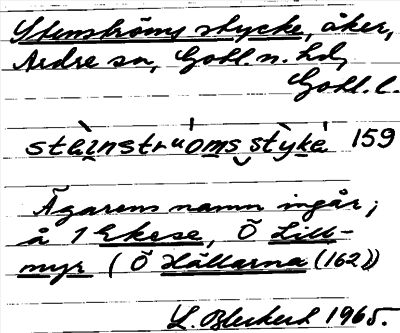 Stenströms stycke, åker,
Ardre sn, Gotl. n. hd,
Gotl. l.
stàinstruoms stỳkè 159
Ägarens namn ingår;
å 1 Ekese, Ö Lill-
myr (Ö Hällarna (162))
L. Bleckert 1965.